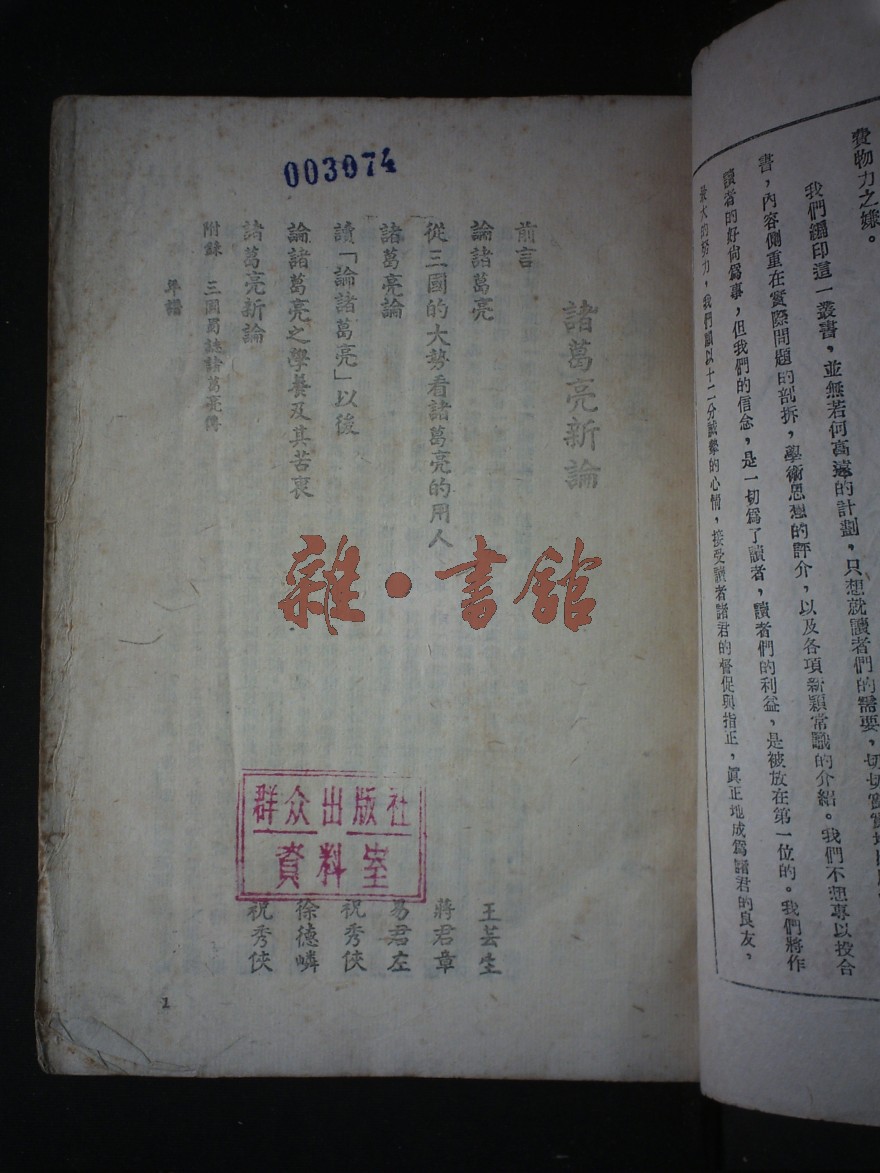 費物力之嫌。
我們編印這一叢書，並無若何高遠的計劃，只想就讀者們的需要，切切實實
書，內容側重在實際問題的剖拆，學術思想的評介，以及各項新穎常識的介紹。我們不想專以投合
讀者的好尚爲事，但我們的信念，是一切爲了讀者，讀者們的利益，是被放在第一位的。我們將作
最大的努力，我們願以十二分誠摯的心情，接受讀者諸君的督促與指正，眞正地成爲諸君的良友，
003074
諸葛亮新論
前言
論諸葛亮 王芸生
從三國的大勢看諸葛亮的用人 蔣君章
諸葛亮論 易君左
讀「論諸葛亮」以後 祝秀俠
論諸葛亮之學養及其苦衷 徐德嶙
諸葛亮新論 祝秀俠
附錄 三國蜀誌諸葛亮傳
年譜
1
雜·書館
群众出版社
資料室